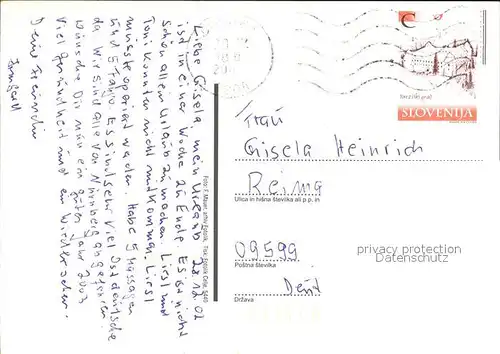 Liebe Gisela mein Urlaub 28.12.02
ist in einer Woche zu Ende. Es ist nicht
schön allein Urlaub zu machen. Liesl und
Toni konnten nicht mitkommen. Liesl
musste operiert werden. Habe 5 Massagen
und 5 Fango. Es sind sehr viel Ostdeutsche
da wir sind alle von Nürnberg abgefahren.
wünsche Dir nun ein gutes Jahr 2003
viel Gesundheit und ein Wiedersehen.
Deine Freundin
Irmgard
Foto: F. Mauer, arhiv Epsilon, Tisk: Epsilon Celje, 5440
C
Grad
SLOVENIJA
Frau
Gisela Heinrich
Reima
Ulica in hišna številka ali p.p. in
09599
Poštna številka
Deut
Država
privacy protection
Datenschutz